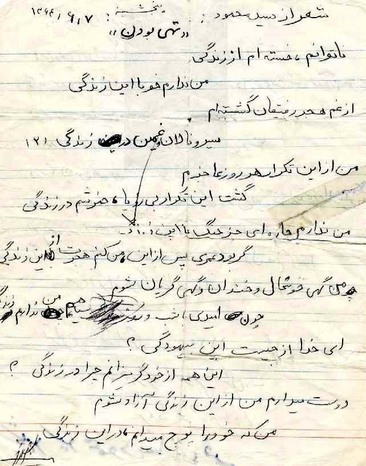 شعر از سید محمود : پنجشنبه : ۱۳۶۶,۹,۷
«تهی بودن»
ناتوانم، خسته ام از زندگی
من ندارم خو با این زندگی
از غم هجر رفتگان گشته ام
سیر و نالان و غمین در زندگی (۲)
من از این تکرار هر روز ما خدم
گشت این تکرار بی
من ندارم چاره ای جز جنگ با این زندگی
گر بود عمری پس از این من کنم هجرت از این زندگی
من گهی خوشحال و خندان و گهی گریان شوم
چون امیدی
ای خدا از چیست این بیهودگی ؟
این همه از خود گریزانم چرا در زندگی ؟
دوست میدارم من از این زندگی آزاد شوم
من که خود را پوچ میدانم در این زندگی